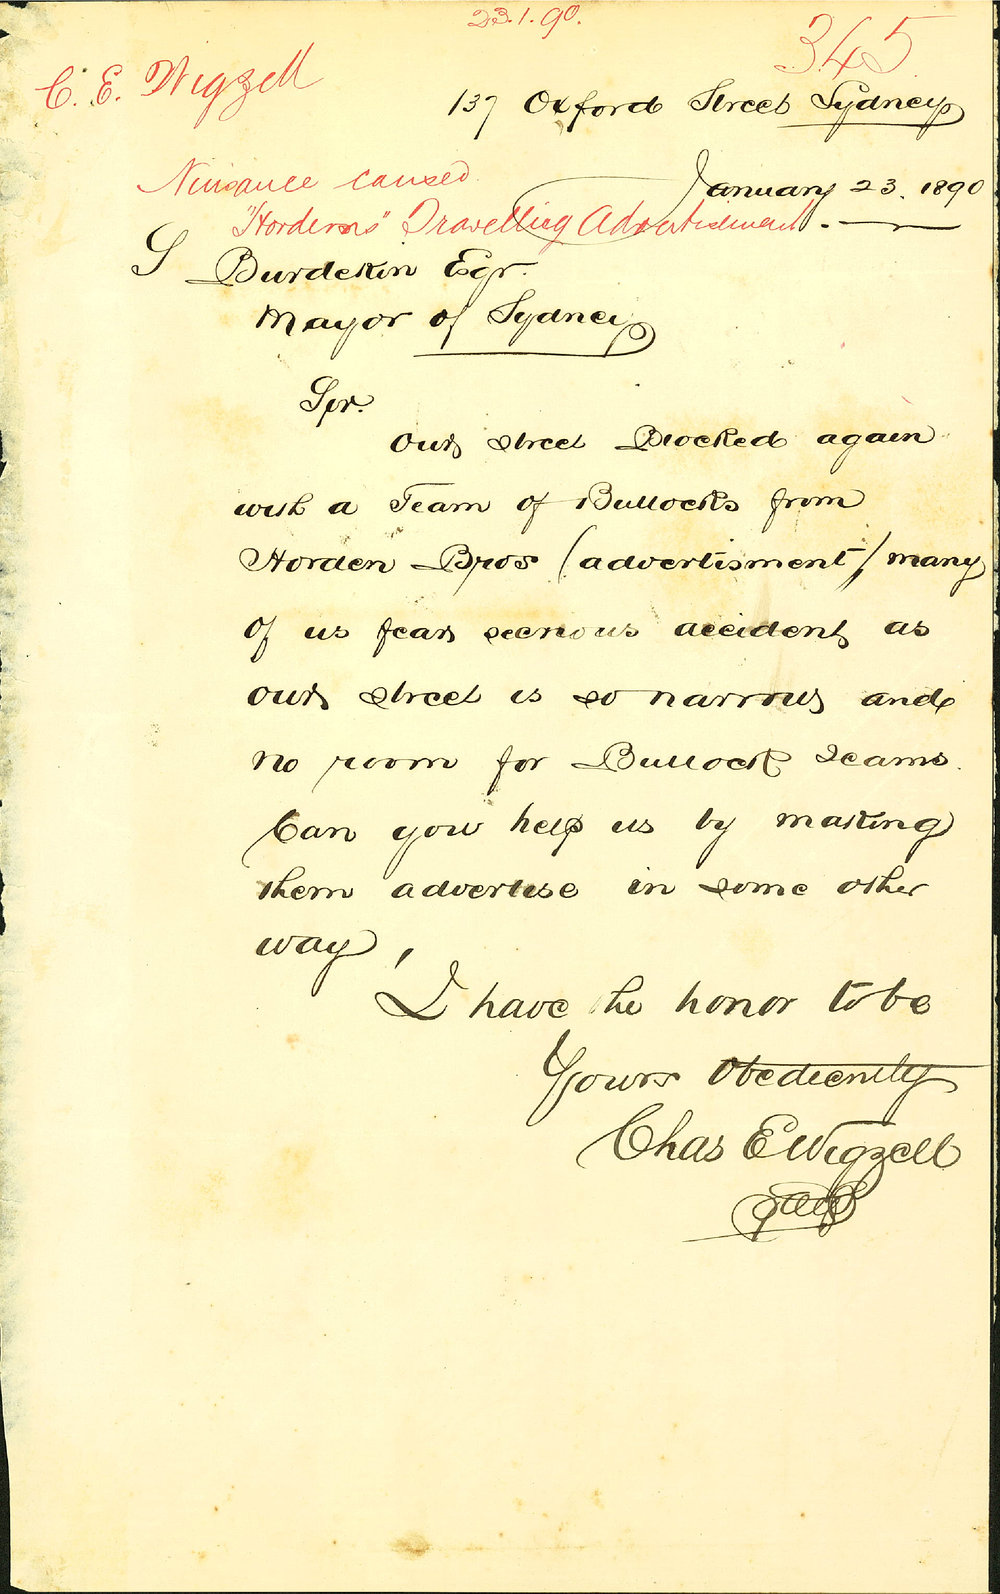 23.1.90.
345
C. E. Wigzell
137 Oxford Street Sydney
January 23. 1890
Nuisance caused
"Horderns" Travelling Advertisement.
S Burdekin Eqr.
Mayor of Sydney
Sir.
Our street Blocked again
with a Team of Bullocks from
Horden Bros (advertisment) many
of us fear seerious accident as
our street is so narrow and
no room for Bullock teams.
Can you help us by making
them advertise in some other
way,
I have the honor to be
Yours Obediently
Chas E Wigzell